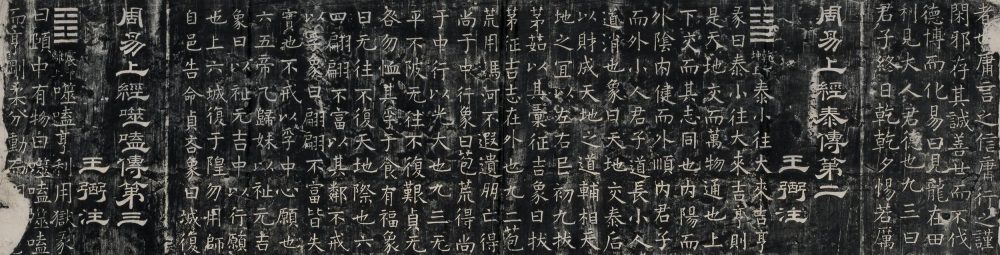 者也庸言之信庸行之謹
閑邪存其誠善世而不伐
德博而化易曰見龍在田
利見大人君德也九三曰
君子終日乾乾夕惕若厲
周易上經泰傳第二
王弼注
䷊泰小往大來吉亨
彖曰泰小往大來吉亨則
是天地交而萬物通也上
下交而其志同也內陽而
外陰內健而外順內君子
而外小人君子道長小人
道消也象曰天地交泰后
以財成天地之道輔相天
地之宜以左右民初九拔
茅茹以其彙征吉象曰拔
茅征吉志在外也九二苞
荒用馮河不遐遺朋亡得
尚于中行象曰苞荒得尚
于中行以光大也九三无
平不陂无往不復艱貞无
咎勿恤其孚于食有福象
曰无往不復天地際也六
四翩翩不富以其鄰不戒
以孚象曰翩翩不富皆失
實也不戒以孚中心願也
六五帝乙歸妹以祉元吉
象曰以祉元吉中以行願
也上六城復于隍勿用師
自邑告命貞吝象曰城復
周易上經噬嗑傳第三
王弼注
䷔噬嗑亨利用獄彖
曰頤中有物曰噬嗑噬嗑
而亨剛柔分動而